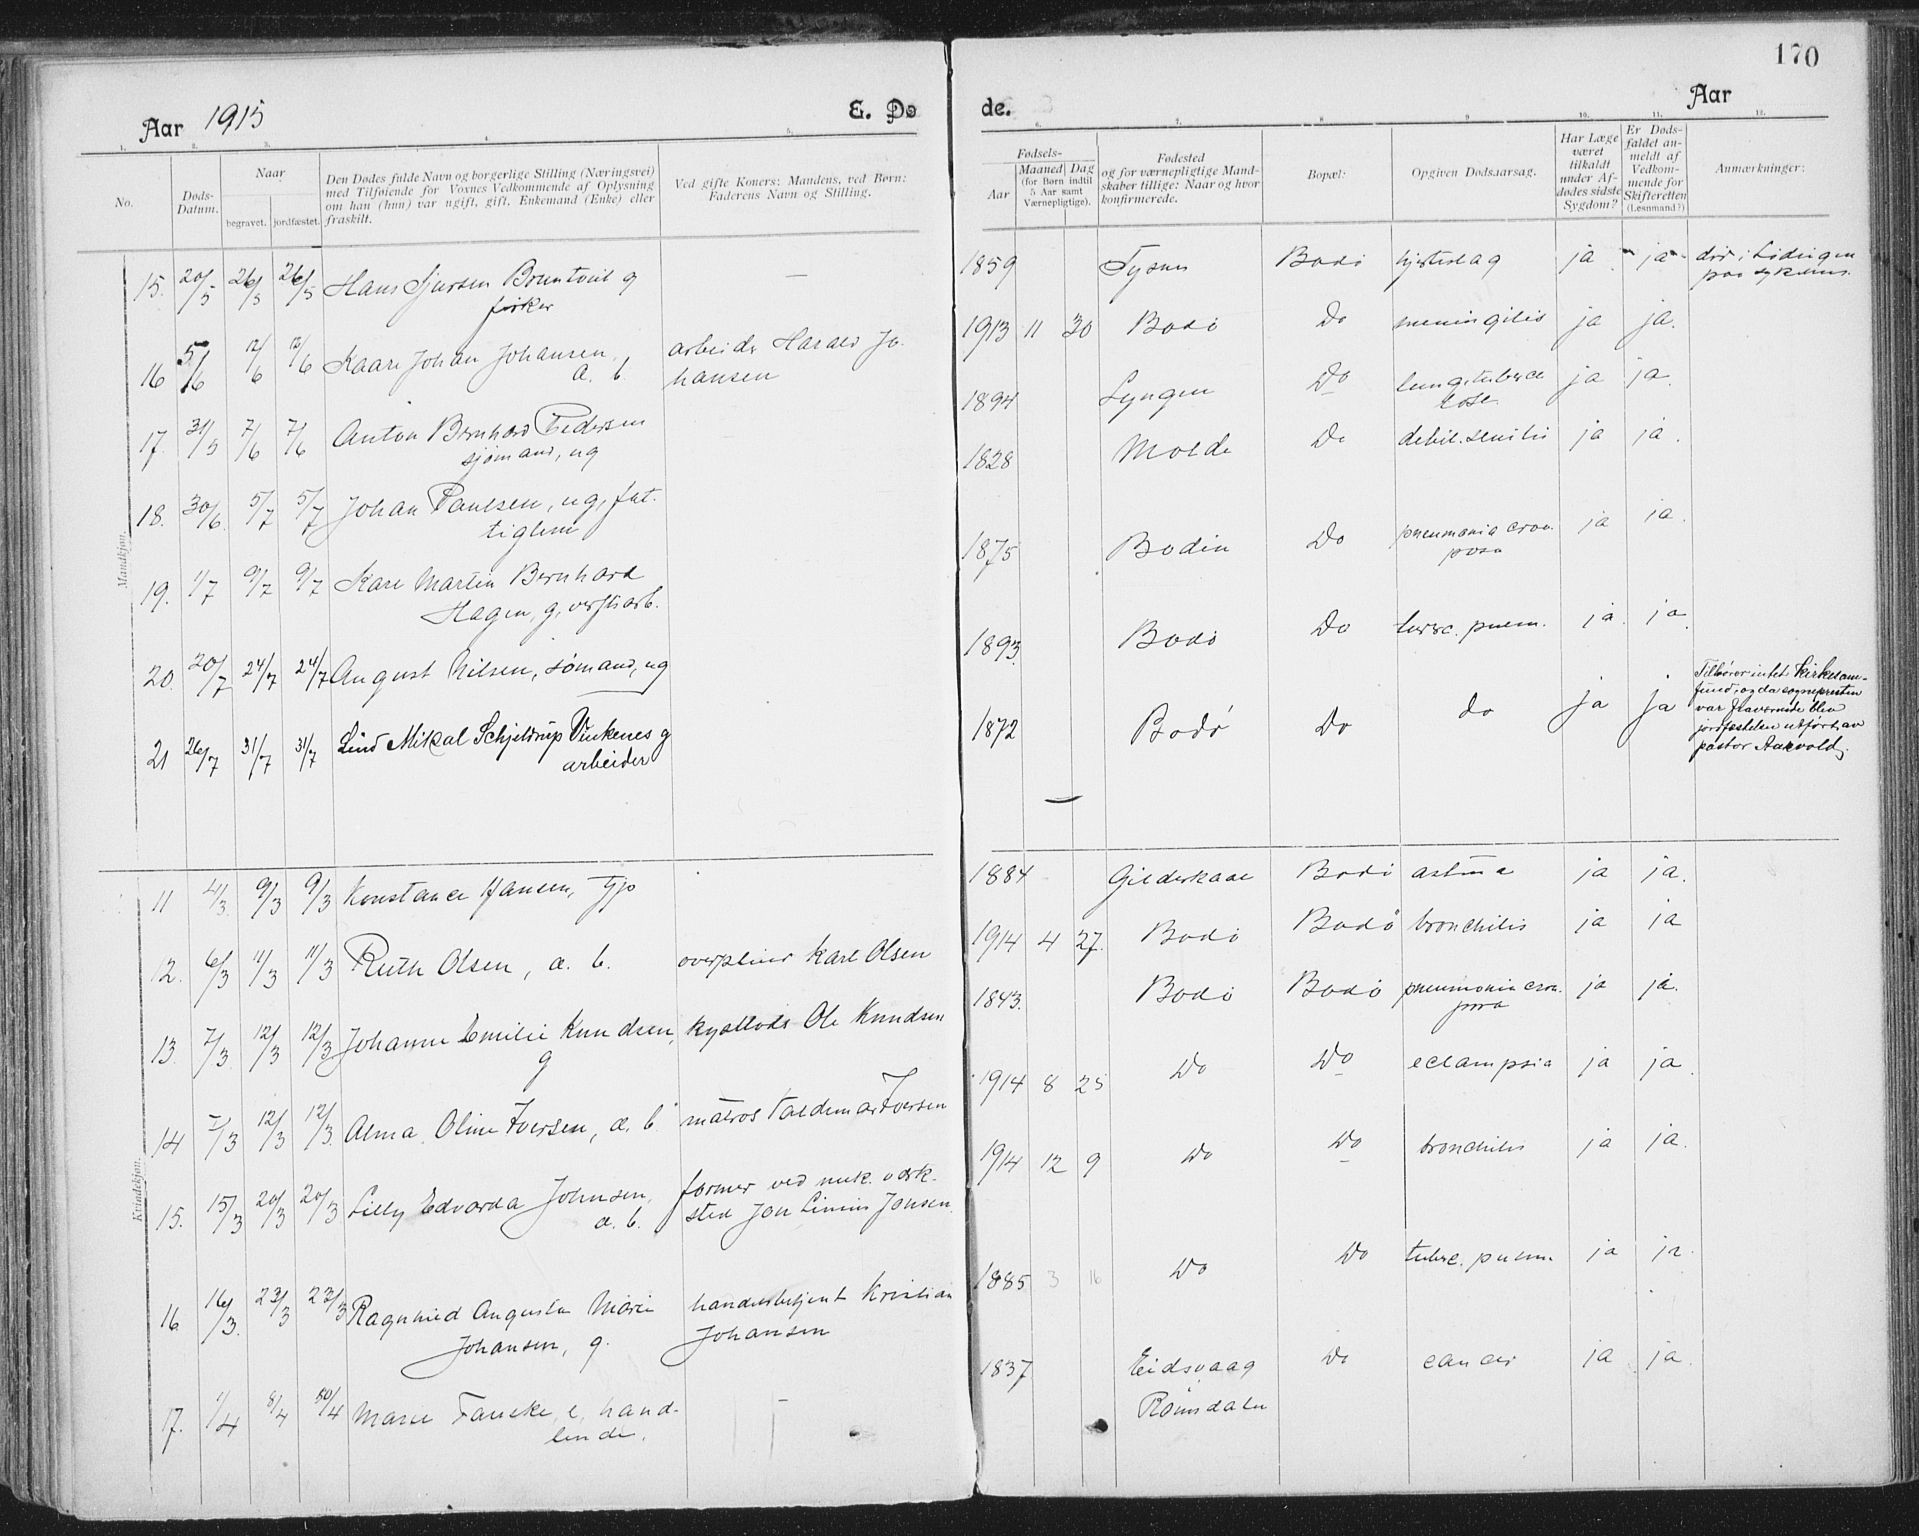 170
Aar 1915
E. Dø
de.
Aar
1. 2. 3. 4. 5. 6. 7. 8. 9. 10. 11. 12.
No.
Døds-
Datum.
Naar
begravet. jordfæstet.
Den Dødes fulde Navn og borgerlige Stilling (Næringsvei)
med Tilføiende for Voxnes Vedkommende af Oplysning
om han (hun) var ugift, gift, Enkemand (Enke) eller
fraskilt.
Ved gifte Koners: Mandens, ved Børn:
Faderens Navn og Stilling.
Fødsels-
Aar
Maaned Dag
(for Børn indtil
5 Aar samt
Værnepligtige).
Fødested
og for værnepligtige Mand-
skaber tillige: Naar og hvor
konfirmerede.
Bopæl:
Opgiven Dødsaarsag.
Har Læge
været
tilkaldt
under Af-
dødes sidste
Sygdom?
Er Døds-
faldet an-
meldt af
Vedkom-
mende for
Skifteretten
(Lesnmand?)
Anmærkninger:
Mandkjøn.
15. 20/5 26/5 26/5 Hans Sjursen Bruntveit g
fisker
—
1859 Tysnes Bodø hjerteslag ja ja død i Lødingen
paa sykehus.
16 5/6 12/6 12/6 Kaare Johan Johansen,
a. b.
arbeider Harald Jo-
hansen
1913 11 30 Bodø Do meningitis ja ja.
17. 31/5 7/6 7/6 Anton Bernhard Pedersen
sjømand, ug
1894 Lyngen Do lungetubercu
lose ja ja.
18. 30/6 5/7 5/7 Johan Paulsen, ug, fat-
tiglem
1828 Molde Do debil. senilis ja ja.
19. 1/7 9/7 9/7 Kare Martin Bernhard
Hagen, g, verftsarb.
1875 Bodin Do pneumonia crou-
posa ja ja.
20. 20/7 24/7 24/7 August Nilsen, sømand, ug
1893. Bodø Do tuberc. pulm. ja ja
21 26/7 31/7 31/7 Lind Mikal Schjeldrup Vinkenes g
arbeider
1872 Bodø Do do ja ja
Tilhører intet kirkesam-
fund, og da sognepresten
var fraværende blev
jordfæstelsen utført av
pastor Aakvold.
Kvindekjøn.
11 4/3. 9/3 9/3 Konstance Hansen, tjp
1884 Gildeskaal Bodø astma ja ja.
12. 6/3 11/3 11/3 Ruth Olsen, a. b. overpleier Karl Olsen
1914 4 27. Bodø Bodø bronchitis ja ja
13. 7/3 12/3 12/3 Johanne Emilie Knudsen, kystlods Ole Knudsen
g
1843. Bodø Bodø pneumonia crou-
posa ja ja.
14 7/3 12/3 12/3. Alma Oline Iversen, a. b. matros Valdemar Iversen
1914 8 25 Do Do eclampsia ja ja
15. 15/3 20/3 20/3 Lilly Edvarda Johnsen,
a. b.
former ved mek. verk-
sted Jon Linius Jonsen
1914 12 9 Do Do bronchitis ja ja.
16 16/3. 23/3 23/3 Ragnhild Augusta Marie
Johansen, g.
handelsbetjent Kristian
Johansen
1885 3 16 Do Do tuberc. pulm. ja ja.
17. 1/4 8/4 50/4 Marie Fancke, e, hand-
lende.
—
1837 Eidsvaag
Romsdalen Do cancer ja ja.